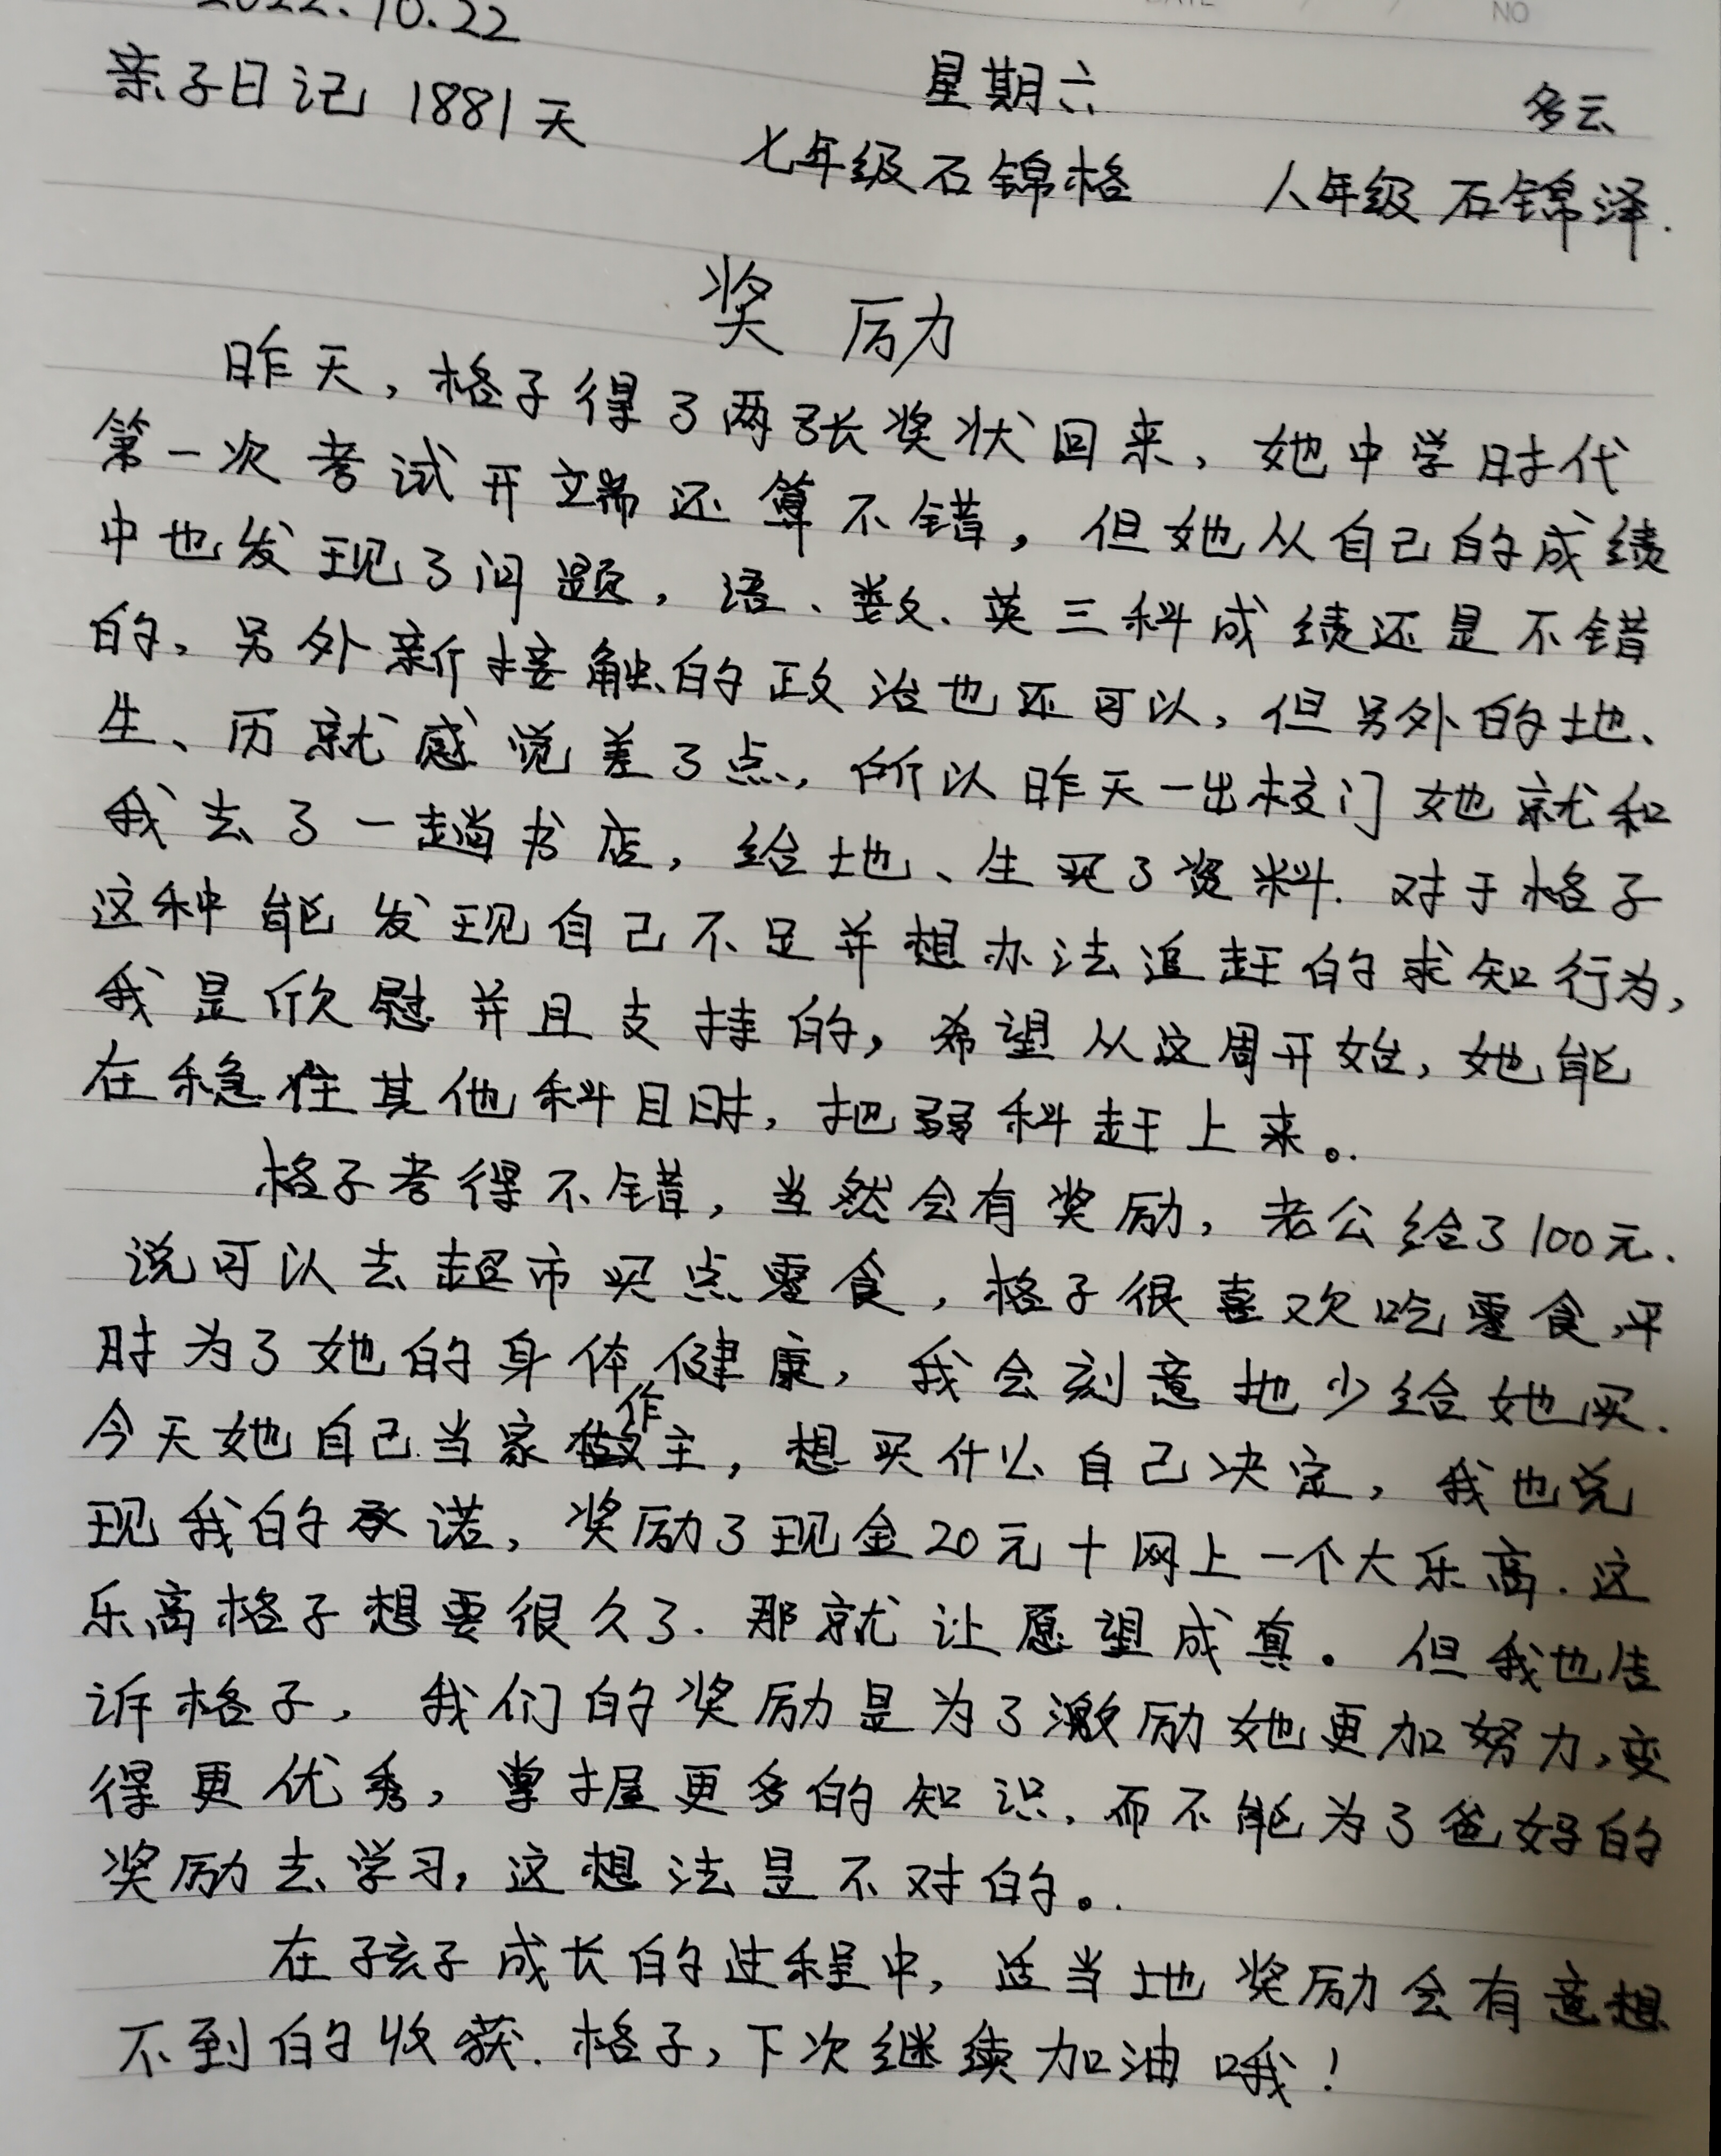 2022.10.22
DATE / / NO
亲子日记 1881天 星期六 多云
七年级石锦格 八年级石锦泽.
奖励
昨天，格子得了两张奖状回来，她中学时代
第一次考试开端还算不错，但她从自己的成绩
中也发现了问题，语、数、英三科成绩还是不错
的。另外新接触的政治也还可以，但另外的地、
生、历就感觉差了点，所以昨天一出校门她就和
我去了一趟书店，给地、生买了资料.对于格子
这种能发现自己不足并想办法追赶的求知行为，
我是欣慰并且支持的，希望从这周开始，她能
在稳住其他科目时，把弱科赶上来。
格子考得不错，当然会有奖励，老公给了100元.
说可以去超市买点零食，格子很喜欢吃零食，平
时为了她的身体健康，我会刻意地少给她买.
今天她自己当家作主，想买什么自己决定，我也兑
现我的承诺，奖励了现金20元+网上一个大乐高.这
乐高格子想要很久了.那就让愿望成真。但我也告
诉格子，我们的奖励是为了激励她更加努力，变
得更优秀，掌握更多的知识，而不能为了爸妈的
奖励去学习，这想法是不对的。
在孩子成长的过程中，适当地奖励会有意想
不到的收获.格子，下次继续加油哦！